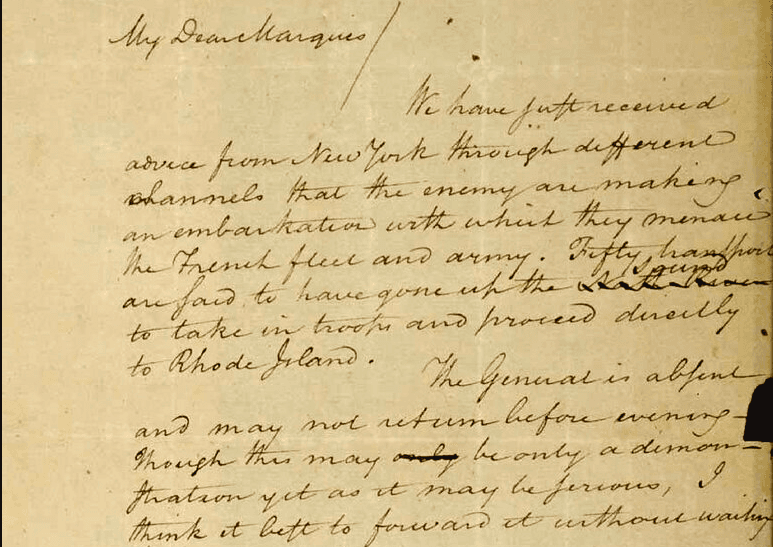 My Dear Marquis /
We have just received
advice from New York through different
channels that the enemy are making
an embarkation with which they menace
the French fleet and army. Fifty transports
Sound
are said to have gone up the North River
to take in troops and proceed directly
to Rhode Island.
The General is absent
and may not return before evening-
Though this may only be only a demon-
stration yet as it may be serious, I
think it best to forward it without waiting